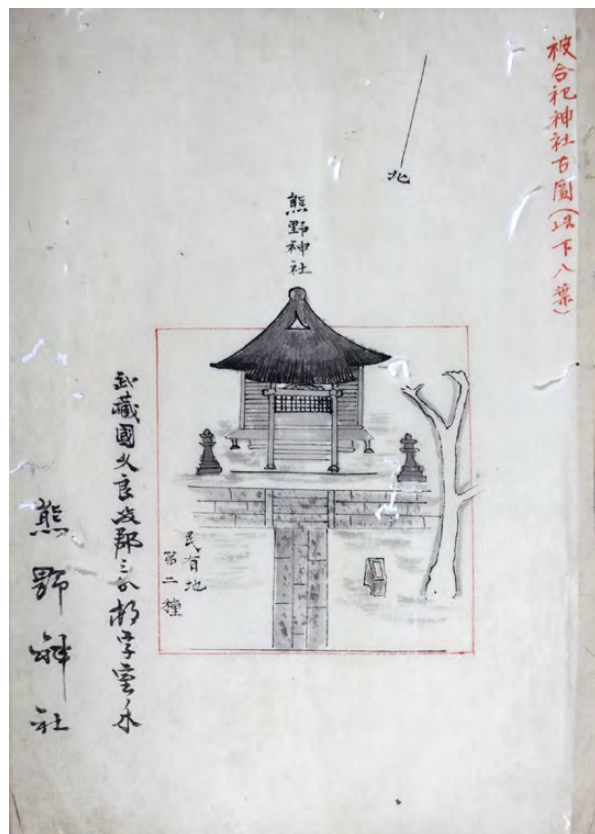 被合祀神社古圖(以下八葉)
北
熊野神社
民有地
第二種
武藏國久良岐郡三分村字室木
熊野神社